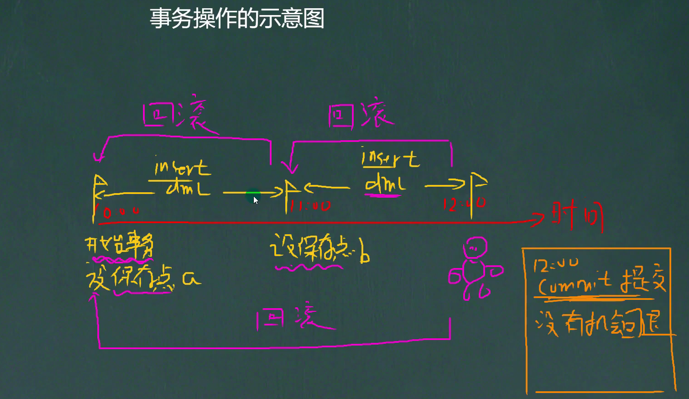 事务操作的示意图
回滚
回滚
insert
dml
insert
dml
11:00
12:00
时间
开始事务
设保存点 a
设保存点 b
回滚
12:00
commit 提交
没有机会回退